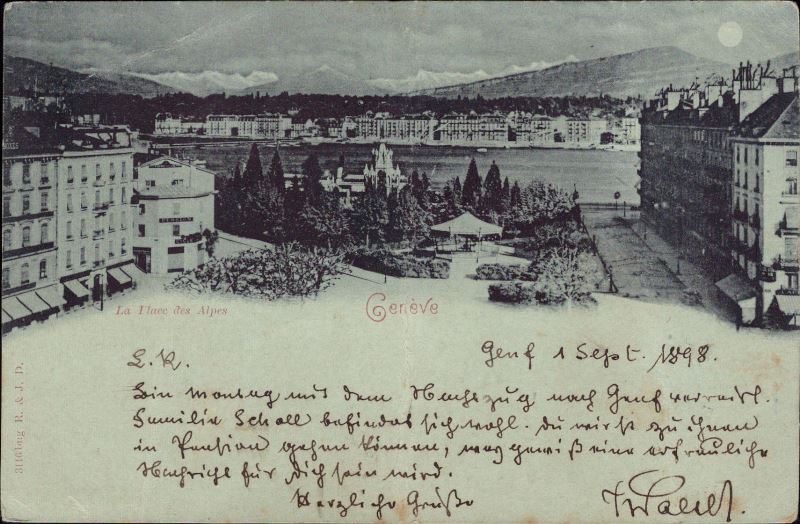 PENSION
La Place des Alpes
Genève
3116 lmg R. & J. D.
Genf 1 Sept. 1898.
L. K.
Bin Montag mit dem Nachtzug nach Genf verreist.
Familie Scholl befindet sich wohl. Du wirst zu ihnen
in Pension gehen können, was gewiß eine erfreuliche
Nachricht für Dich sein wird.
Herzliche Grüße